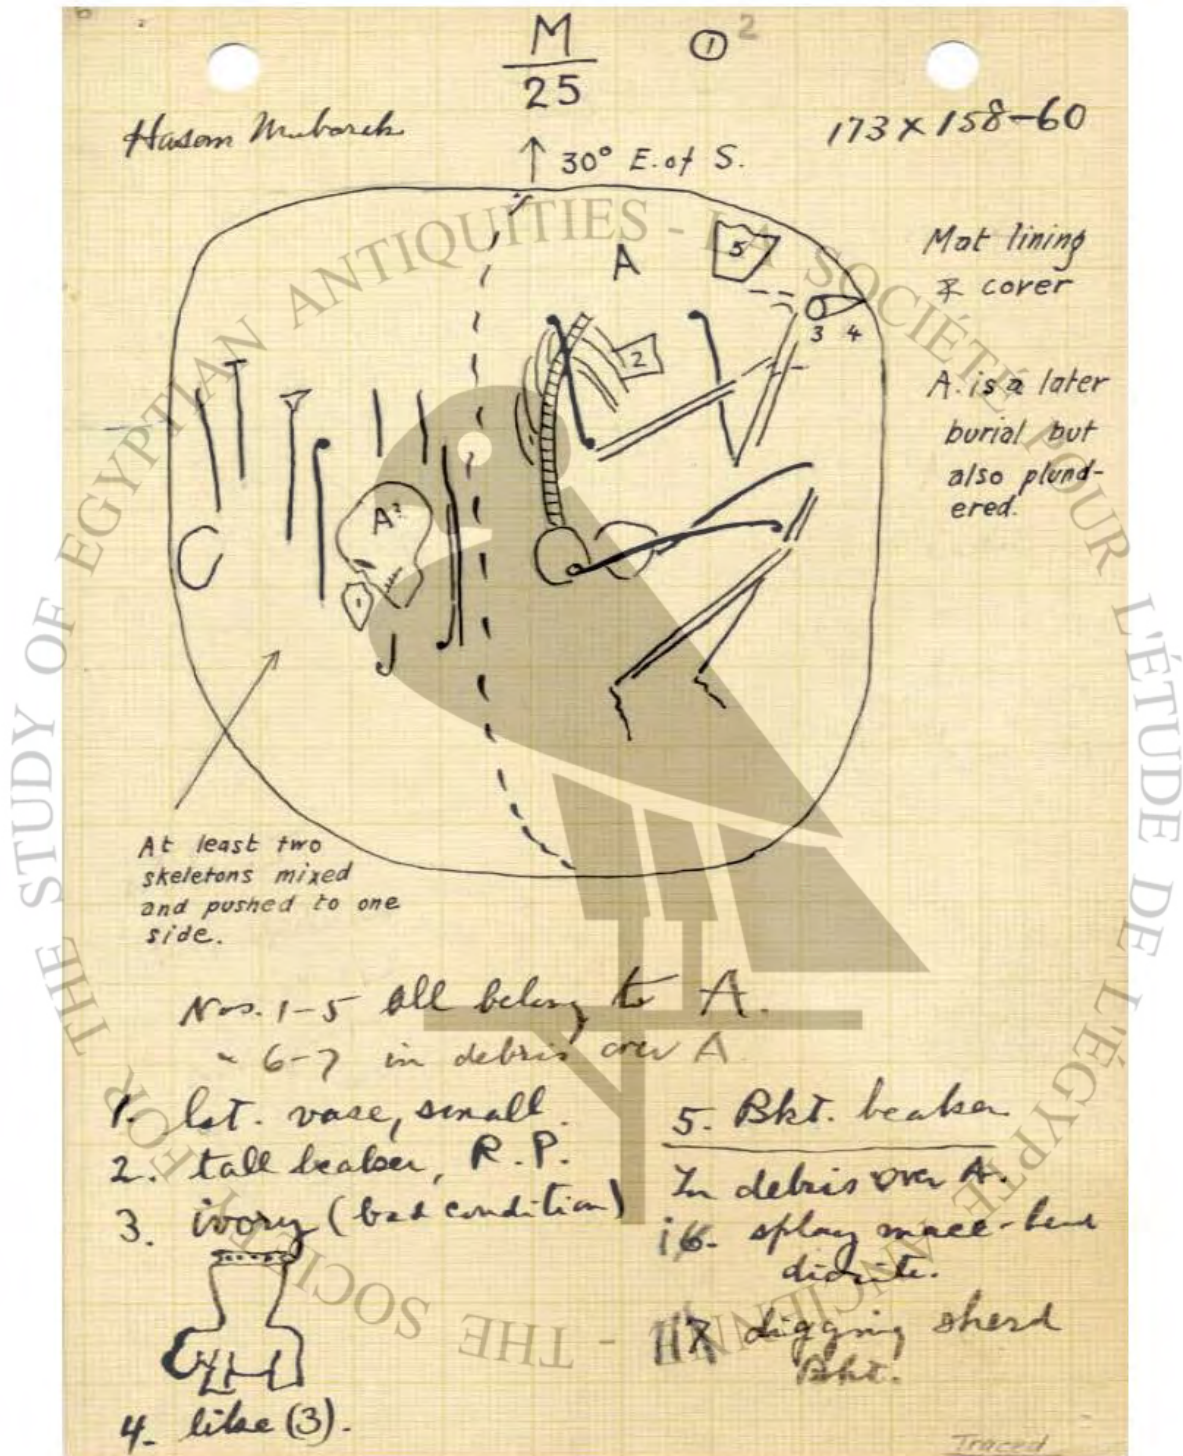 M
25
① 2
Hasan Mubarek
173 x 158-60
↑ 30° E. of S.
Mat lining
& cover
A. is a later
burial but
also plund-
ered.
A
5
3 4
2
A?
1
At least two
skeletons mixed
and pushed to one
side.
Nos. 1-5 all belong to A.
" 6-7 in debris over A
1. lst. vase, small.
2. tall beaker, R.P.
3. ivory (bad condition)
4. like (3).
5. Bkt. beaker
In debris over A.
6. splay mace-head
diorite.
7 digging sherd
Bkt.
Traced
THE SOCIETY FOR THE STUDY OF EGYPTIAN ANTIQUITIES - LA SOCIÉTÉ POUR L'ÉTUDE DE L'ÉGYPTE ANCIENNE -